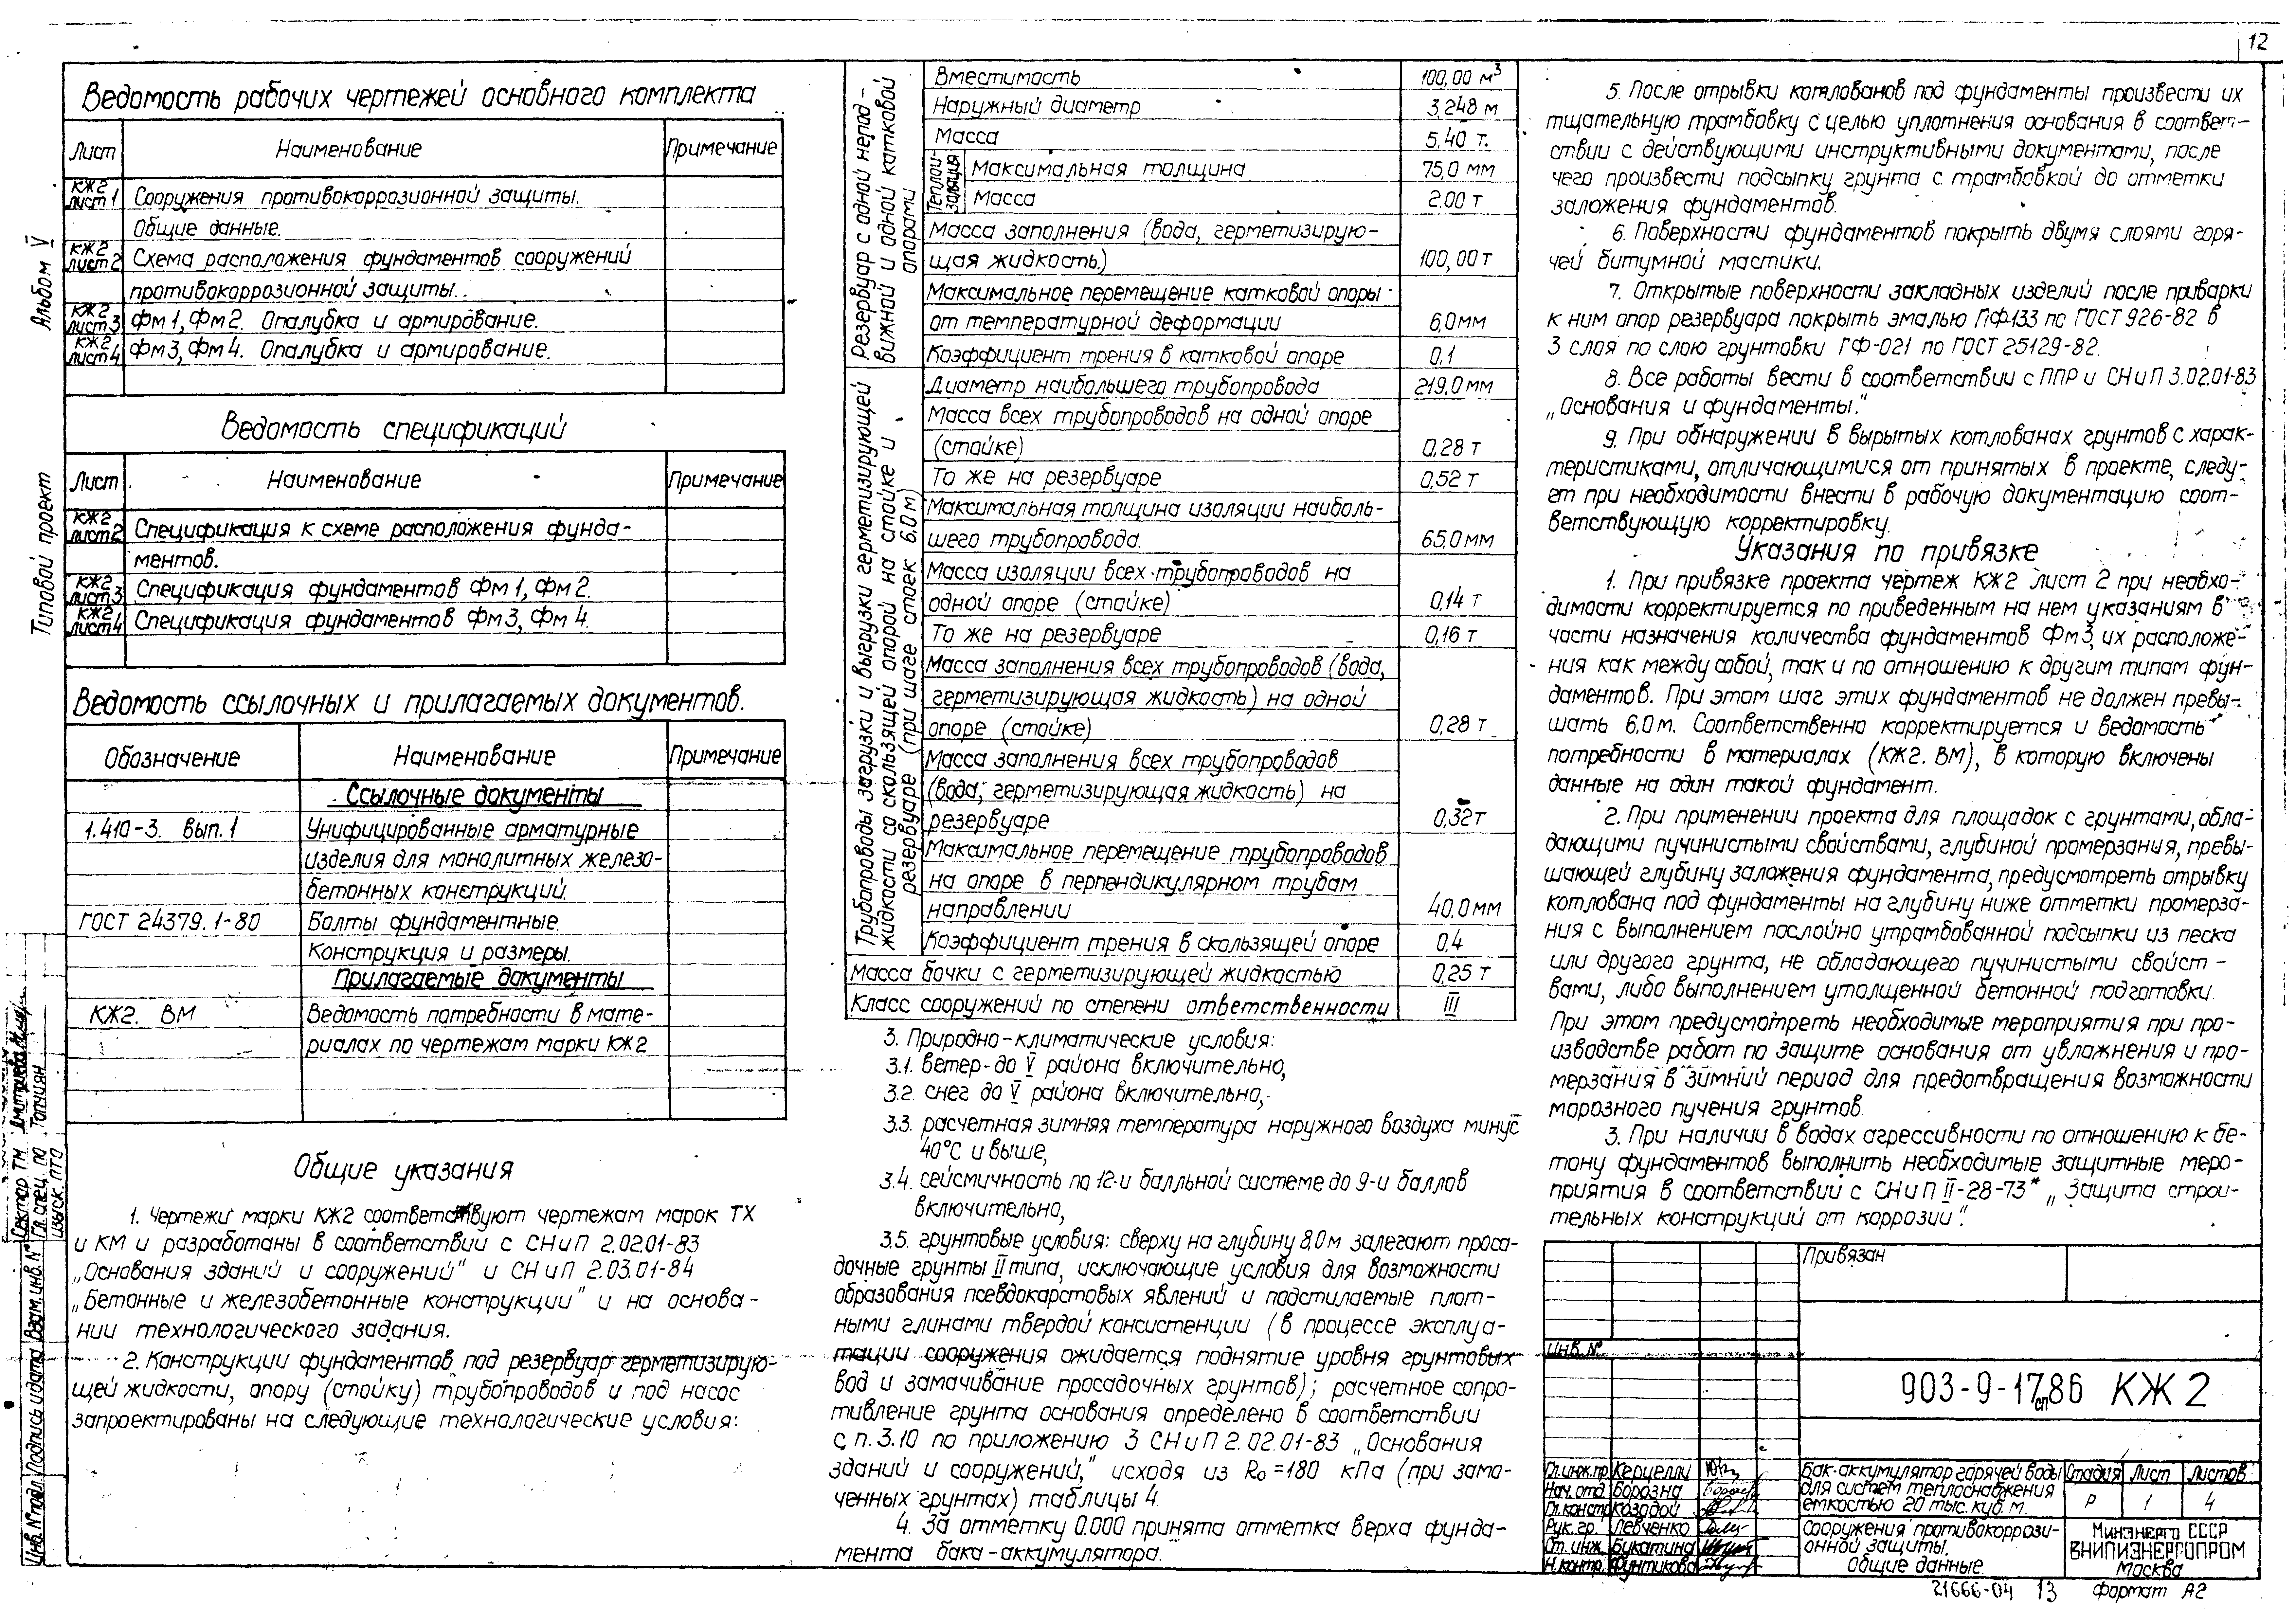 12
Ведомость рабочих чертежей основного комплекта
Лист Наименование Примечание
КЖ2 лист 1 Сооружения противокоррозионной защиты.
Общие данные.
КЖ2 лист 2 Схема расположения фундаментов сооружений
противокоррозионной защиты.
КЖ2 лист 3 Фм1, Фм2. Опалубка и армирование.
КЖ2 лист 4 Фм3, Фм4. Опалубка и армирование.
Ведомость спецификаций
Лист Наименование Примечание
КЖ2 лист 2 Спецификация к схеме расположения фунда-
ментов.
КЖ2 лист 3 Спецификация фундаментов Фм1, Фм2.
КЖ2 лист 4 Спецификация фундаментов Фм3, Фм4.
Ведомость ссылочных и прилагаемых документов.
Обозначение Наименование Примечание
Ссылочные документы
1.410-3. вып.1 Унифицированные арматурные
изделия для монолитных железо-
бетонных конструкций.
ГОСТ 24379.1-80 Болты фундаментные.
Конструкция и размеры.
Прилагаемые документы
КЖ2. ВМ Ведомость потребности в мате-
риалах по чертежам марки КЖ2
Общие указания
1. Чертежи марки КЖ2 соответствуют чертежам марок ТХ
и КМ и разработаны в соответствии с СНиП 2.02.01-83
„Основания зданий и сооружений" и СНиП 2.03.01-84
„Бетонные и железобетонные конструкции" и на основа-
нии технологического задания.
2. Конструкции фундаментов под резервуар герметизирую-
щей жидкости, опору (стойку) трубопроводов и под насос
запроектированы на следующие технологические условия:
Альбом V
Типовой проект
Сектор ТМ Дмитриева
Гл. спец. по Топчиян
изыск. ПТО
Инв. № подл. Подпись и дата Взам. инв. №
Резервуар с одной непод-
вижной и одной катковой
опорами
Вместимость 100,00 м³
Наружный диаметр 3,248 м
Масса 5,40 т.
Теплои-
золяция
Максимальная толщина 75,0 мм
Масса 2.00 т
Масса заполнения (вода, герметизирую-
щая жидкость.) 100,00 т
Максимальное перемещение катковой опоры
от температурной деформации 6,0 мм
Коэффициент трения в катковой опоре 0,1
Трубопроводы загрузки и выгрузки герметизирующей
жидкости со скользящей опорой на стойке и
резервуаре (при шаге стоек 6,0 м)
Диаметр наибольшего трубопровода 219,0 мм
Масса всех трубопроводов на одной опоре
(стойке) 0,28 т
То же на резервуаре 0,52 т
Максимальная толщина изоляции наиболь-
шего трубопровода. 65,0 мм
Масса изоляции всех трубопроводов на
одной опоре (стойке) 0,14 т
То же на резервуаре 0,16 т
Масса заполнения всех трубопроводов (вода,
герметизирующая жидкость) на одной
опоре (стойке) 0,28 т
Масса заполнения всех трубопроводов
(вода, герметизирующая жидкость) на
резервуаре 0,32 т
Максимальное перемещение трубопроводов
на опоре в перпендикулярном трубам
направлении 40,0 мм
Коэффициент трения в скользящей опоре 0,4
Масса бочки с герметизирующей жидкостью 0,25 т
Класс сооружений по степени ответственности III
3. Природно-климатические условия:
3.1. ветер-до V района включительно,
3.2. снег до V района включительно,
3.3. расчетная зимняя температура наружного воздуха минус
40°С и выше,
3.4. сейсмичность по 12-и балльной системе до 9-и баллов
включительно,
3.5. грунтовые условия: сверху на глубину 8,0 м залегают проса-
дочные грунты II типа, исключающие условия для возможности
образования псевдокарстовых явлений и подстилаемые плот-
ными глинами твердой консистенции (в процессе эксплуа-
тации сооружения ожидается поднятие уровня грунтовых
вод и замачивание просадочных грунтов); расчетное сопро-
тивление грунта основания определено в соответствии
с п. 3.10 по приложению 3 СНиП 2.02.01-83 „Основания
зданий и сооружений," исходя из R₀=180 кПа (при замо-
ченных грунтах) таблицы 4.
4. За отметку 0.000 принята отметка верха фунда-
мента бака-аккумулятора.
5. После отрывки котлованов под фундаменты произвести их
тщательную трамбовку с целью уплотнения основания в соответ-
ствии с действующими инструктивными документами, после
чего произвести подсыпку грунта с трамбовкой до отметки
заложения фундаментов.
6. Поверхности фундаментов покрыть двумя слоями горя-
чей битумной мастики.
7. Открытые поверхности закладных изделий после приварки
к ним опор резервуара покрыть эмалью ПФ-133 по ГОСТ 926-82 в
3 слоя по слою грунтовки ГФ-021 по ГОСТ 25129-82.
8. Все работы вести в соответствии с ППР и СНиП 3.02.01-83
„Основания и фундаменты."
9. При обнаружении в вырытых котлованах грунтов с харак-
теристиками, отличающимися от принятых в проекте, следу-
ет при необходимости внести в рабочую документацию соот-
ветствующую корректировку.
Указания по привязке
1. При привязке проекта чертеж КЖ2 лист 2 при необхо-
димости корректируется по приведенным на нем указаниям в
части назначения количества фундаментов Фм3, их расположе-
ния как между собой, так и по отношению к другим типам фун-
даментов. При этом шаг этих фундаментов не должен превы-
шать 6,0 м. Соответственно корректируется и ведомость
потребности в материалах (КЖ2. ВМ), в которую включены
данные на один такой фундамент.
2. При применении проекта для площадок с грунтами, обла-
дающими пучинистыми свойствами, глубиной промерзания, превы-
шающей глубину заложения фундамента, предусмотреть отрывку
котлована под фундаменты на глубину ниже отметки промерза-
ния с выполнением послойно утрамбованной подсыпки из песка
или другого грунта, не обладающего пучинистыми свойст-
вами, либо выполнением утолщенной бетонной подготовки.
При этом предусмотреть необходимые мероприятия при про-
изводстве работ по защите основания от увлажнения и про-
мерзания в зимний период для предотвращения возможности
морозного пучения грунтов.
3. При наличии в водах агрессивности по отношению к бе-
тону фундаментов выполнить необходимые защитные меро-
приятия в соответствии с СНиП II-28-73* „Защита строи-
тельных конструкций от коррозии".
Привязан
Инв. №
903-9-17сп.86 КЖ2
Гл. инж. пр. Керцелли
Нач. отд. Борозна
Гл. констр. Козодой
Рук. гр. Левченко
Ст. инж. Букатина
Н. контр. Фунтикова
Бак-аккумулятор горячей воды
для систем теплоснабжения
емкостью 20 тыс. куб. м.
Стадия Лист Листов
Р 1 4
Сооружения противокоррози-
онной защиты.
Общие данные.
Минэнерго СССР
ВНИПИЭНЕРГОПРОМ
Москва
21666-04 13 Формат А2